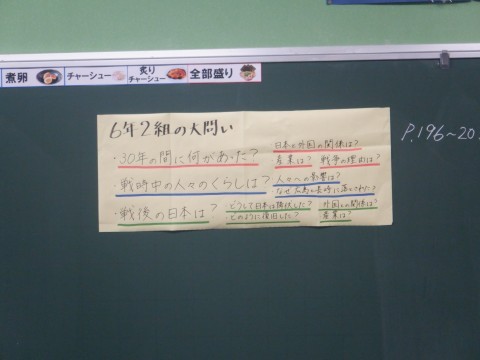 煮卵 チャーシュー 炙りチャーシュー 全部盛り
6年2組の大問い
・30年の間に何があった?
日本と外国の関係は?
産業は? 戦争の理由は?
・戦時中の人々のくらしは?
人々への影響は?
なぜ広島と長崎に落とされた?
・戦後の日本は?
・どうして日本は降伏した? 外国との関係は?
・どのように復旧した? 産業は?
P.196~20